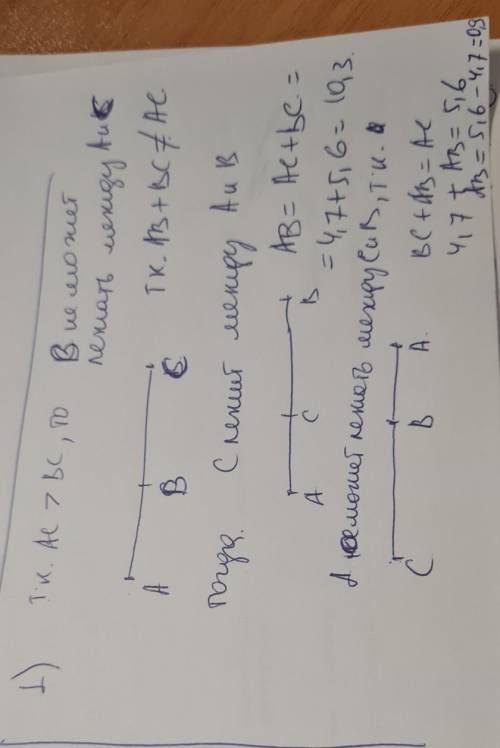 1)
т.к. AC > BC, то B не может
лежать между A и C
A B C
т.к. AB + BC ≠ AC
тогда. C лежит между A и B
A C B
AB = AC + BC =
= 4,7 + 5,6 = 10,3.
A может лежать между C и B, т.к.
C B A.
BC + AB = AC
4,7 + AB = 5,6
AB = 5,6 - 4,7 = 0,9